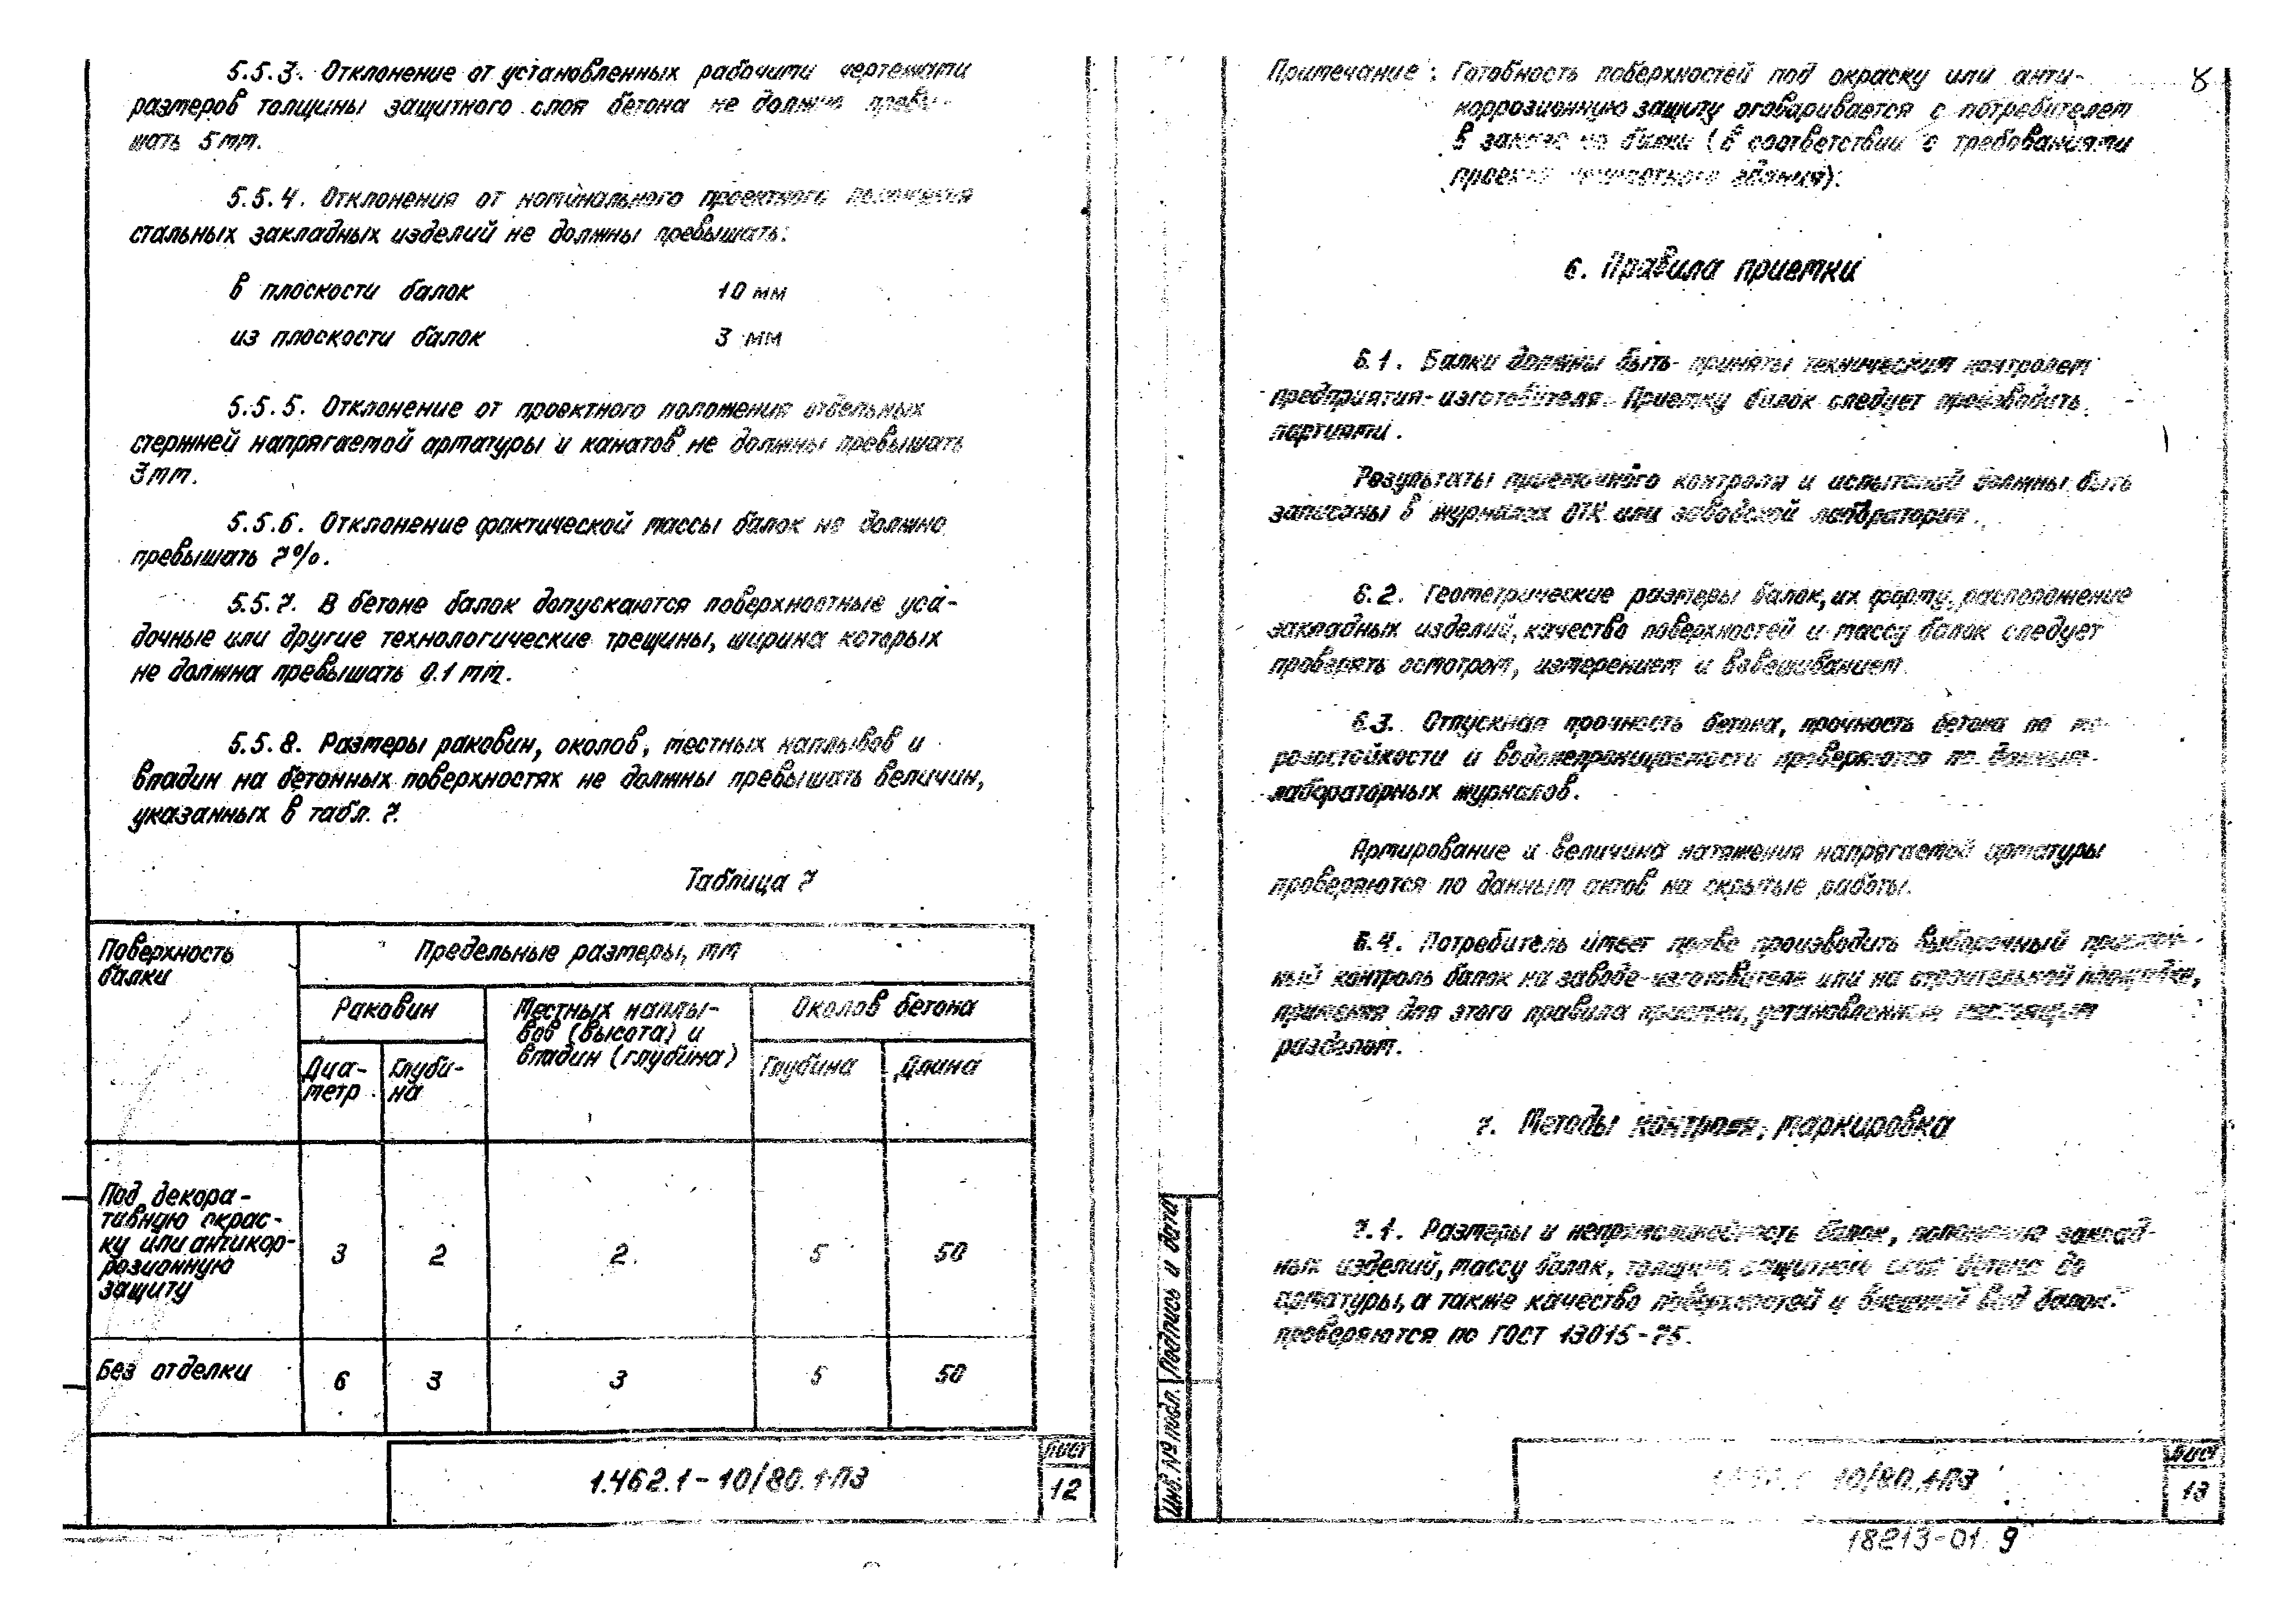 5.5.3. Отклонение от установленных рабочими чертежами
размеров толщины защитного слоя бетона не должно превы-
шать 5мм.
5.5.4. Отклонения от номинального проектного положения
стальных закладных изделий не должны превышать:
в плоскости балок 10 мм
из плоскости балок 3 мм
5.5.5. Отклонение от проектного положения отдельных
стержней напрягаемой арматуры и канатов не должны превышать
3мм.
5.5.6. Отклонение фактической массы балок не должно
превышать 7%.
5.5.7. В бетоне балок допускаются поверхностные уса-
дочные или другие технологические трещины, ширина которых
не должна превышать 0.1 мм.
5.5.8. Размеры раковин, околов, местных наплывов и
впадин на бетонных поверхностях не должны превышать величин,
указанных в табл. 7.
Таблица 7
Поверхность
балки
Предельные размеры, мм
Раковин
Местных наплы-
вов (высота) и
впадин (глубина)
Околов бетона
Диа-
метр
Глуби-
на
Глубина
Длина
Под декора-
тивную окрас-
ку или антикор-
розионную
защиту
3 2 2 5 50
Без отделки 6 3 3 5 50
1.462.1-10/80.1-ПЗ
Лист
12
8
Примечание: Готовность поверхностей под окраску или анти-
коррозионную защиту оговаривается с потребителем
в заказе на балки (в соответствии с требованиями
проекта здания).
6. Правила приемки
6.1. Балки должны быть приняты техническим контролем
предприятия-изготовителя. Приемку балок следует производить
партиями.
Результаты приемочного контроля и испытаний должны быть
записаны в журналах ОТК или заводской лаборатории.
6.2. Геометрические размеры балок, их форму, расположение
закладных изделий, качество поверхностей и массу балок следует
проверять осмотром, измерением и взвешиванием.
6.3. Отпускная прочность бетона, прочность бетона по мо-
розостойкости и водонепроницаемости проверяются по данным
лабораторных журналов.
Армирование и величина натяжения напрягаемой арматуры
проверяются по данным актов на скрытые работы.
6.4. Потребитель имеет право производить выборочный приемоч-
ный контроль балок на заводе-изготовителе или на строительной площадке,
применяя для этого правила приемки, установленные настоящим
разделом.
7. Методы контроля, маркировка
7.1. Размеры и непрямолинейность балок, положение заклад-
ных изделий, массу балок, толщину защитного слоя бетона до
арматуры, а также качество поверхностей и внешний вид балок
проверяются по ГОСТ 13015-75.
Инв. № подл. Подпись и дата
10/80.1-ПЗ
Лист
13
18213-01 9